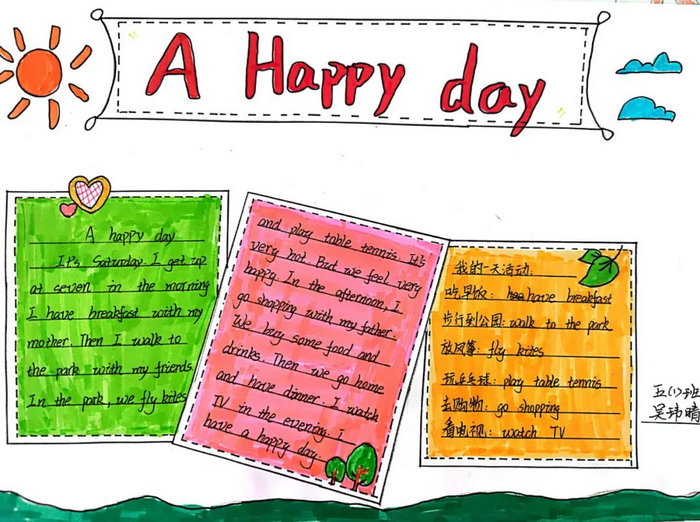 A Happy day
A happy day
It's Saturday. I get up
at seven in the morning
I have breakfast with my
mother. Then I walk to
the park with my friends.
In the park, we fly kites
and play table tennis. It's
very hot. But we feel very
happy. In the afternoon, I
go shopping with my father.
We buy some food and
drinks. Then we go home
and have dinner. I watch
TV in the evening. I
have a happy day.
我的一天活动.
吃早饭: have breakfast
步行到公园: walk to the park
放风筝: fly kites
玩乒乓球: play table tennis
去购物: go shopping
看电视: watch TV
五(1)班
吴玮晴